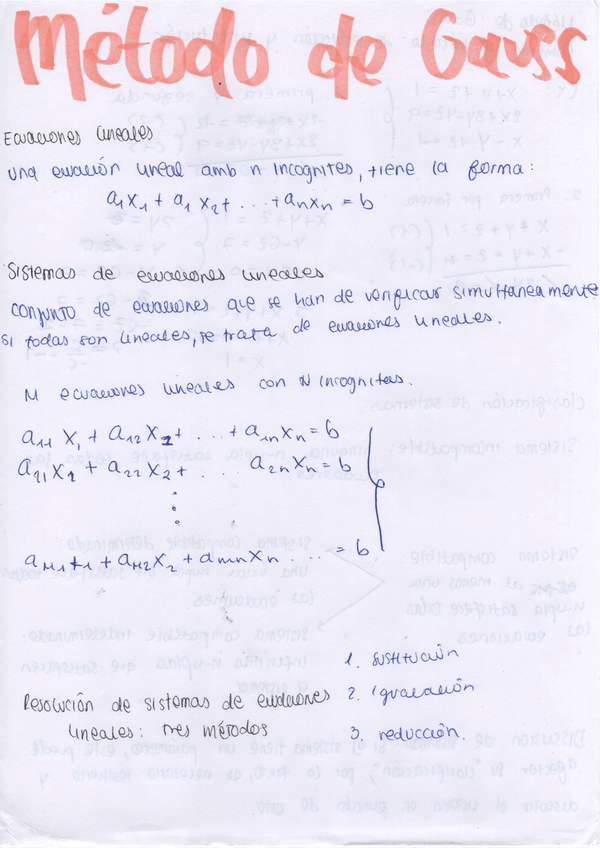 Método de Gauss
Ecuaciones lineales
una ecuación lineal amb n incognites, tiene la forma:
a₁x₁ + a₁ x₂ + . . . + aₙxₙ = b
Sistemas de ecuaciones lineales
conjunto de ecuaciones que se han de verificar simultaneamente
si todas son lineales, se trata de ecuaciones lineales.
M ecuaciones lineales con N incognitas.
a₁₁ x₁ + a₁₂ x₂ + . . . + a₁ₙ xₙ = b
a₂₁ x₂ + a₂₂ x₂ + . . . a₂ₙ xₙ = b
⋮
aₘ₁ x₁ + aₘ₂ x₂ + aₘₙ xₙ . . . = b
Resolución de sistemas de ecuaciones
lineales: tres métodos
1. sustitución
2. igualación
3. reducción.